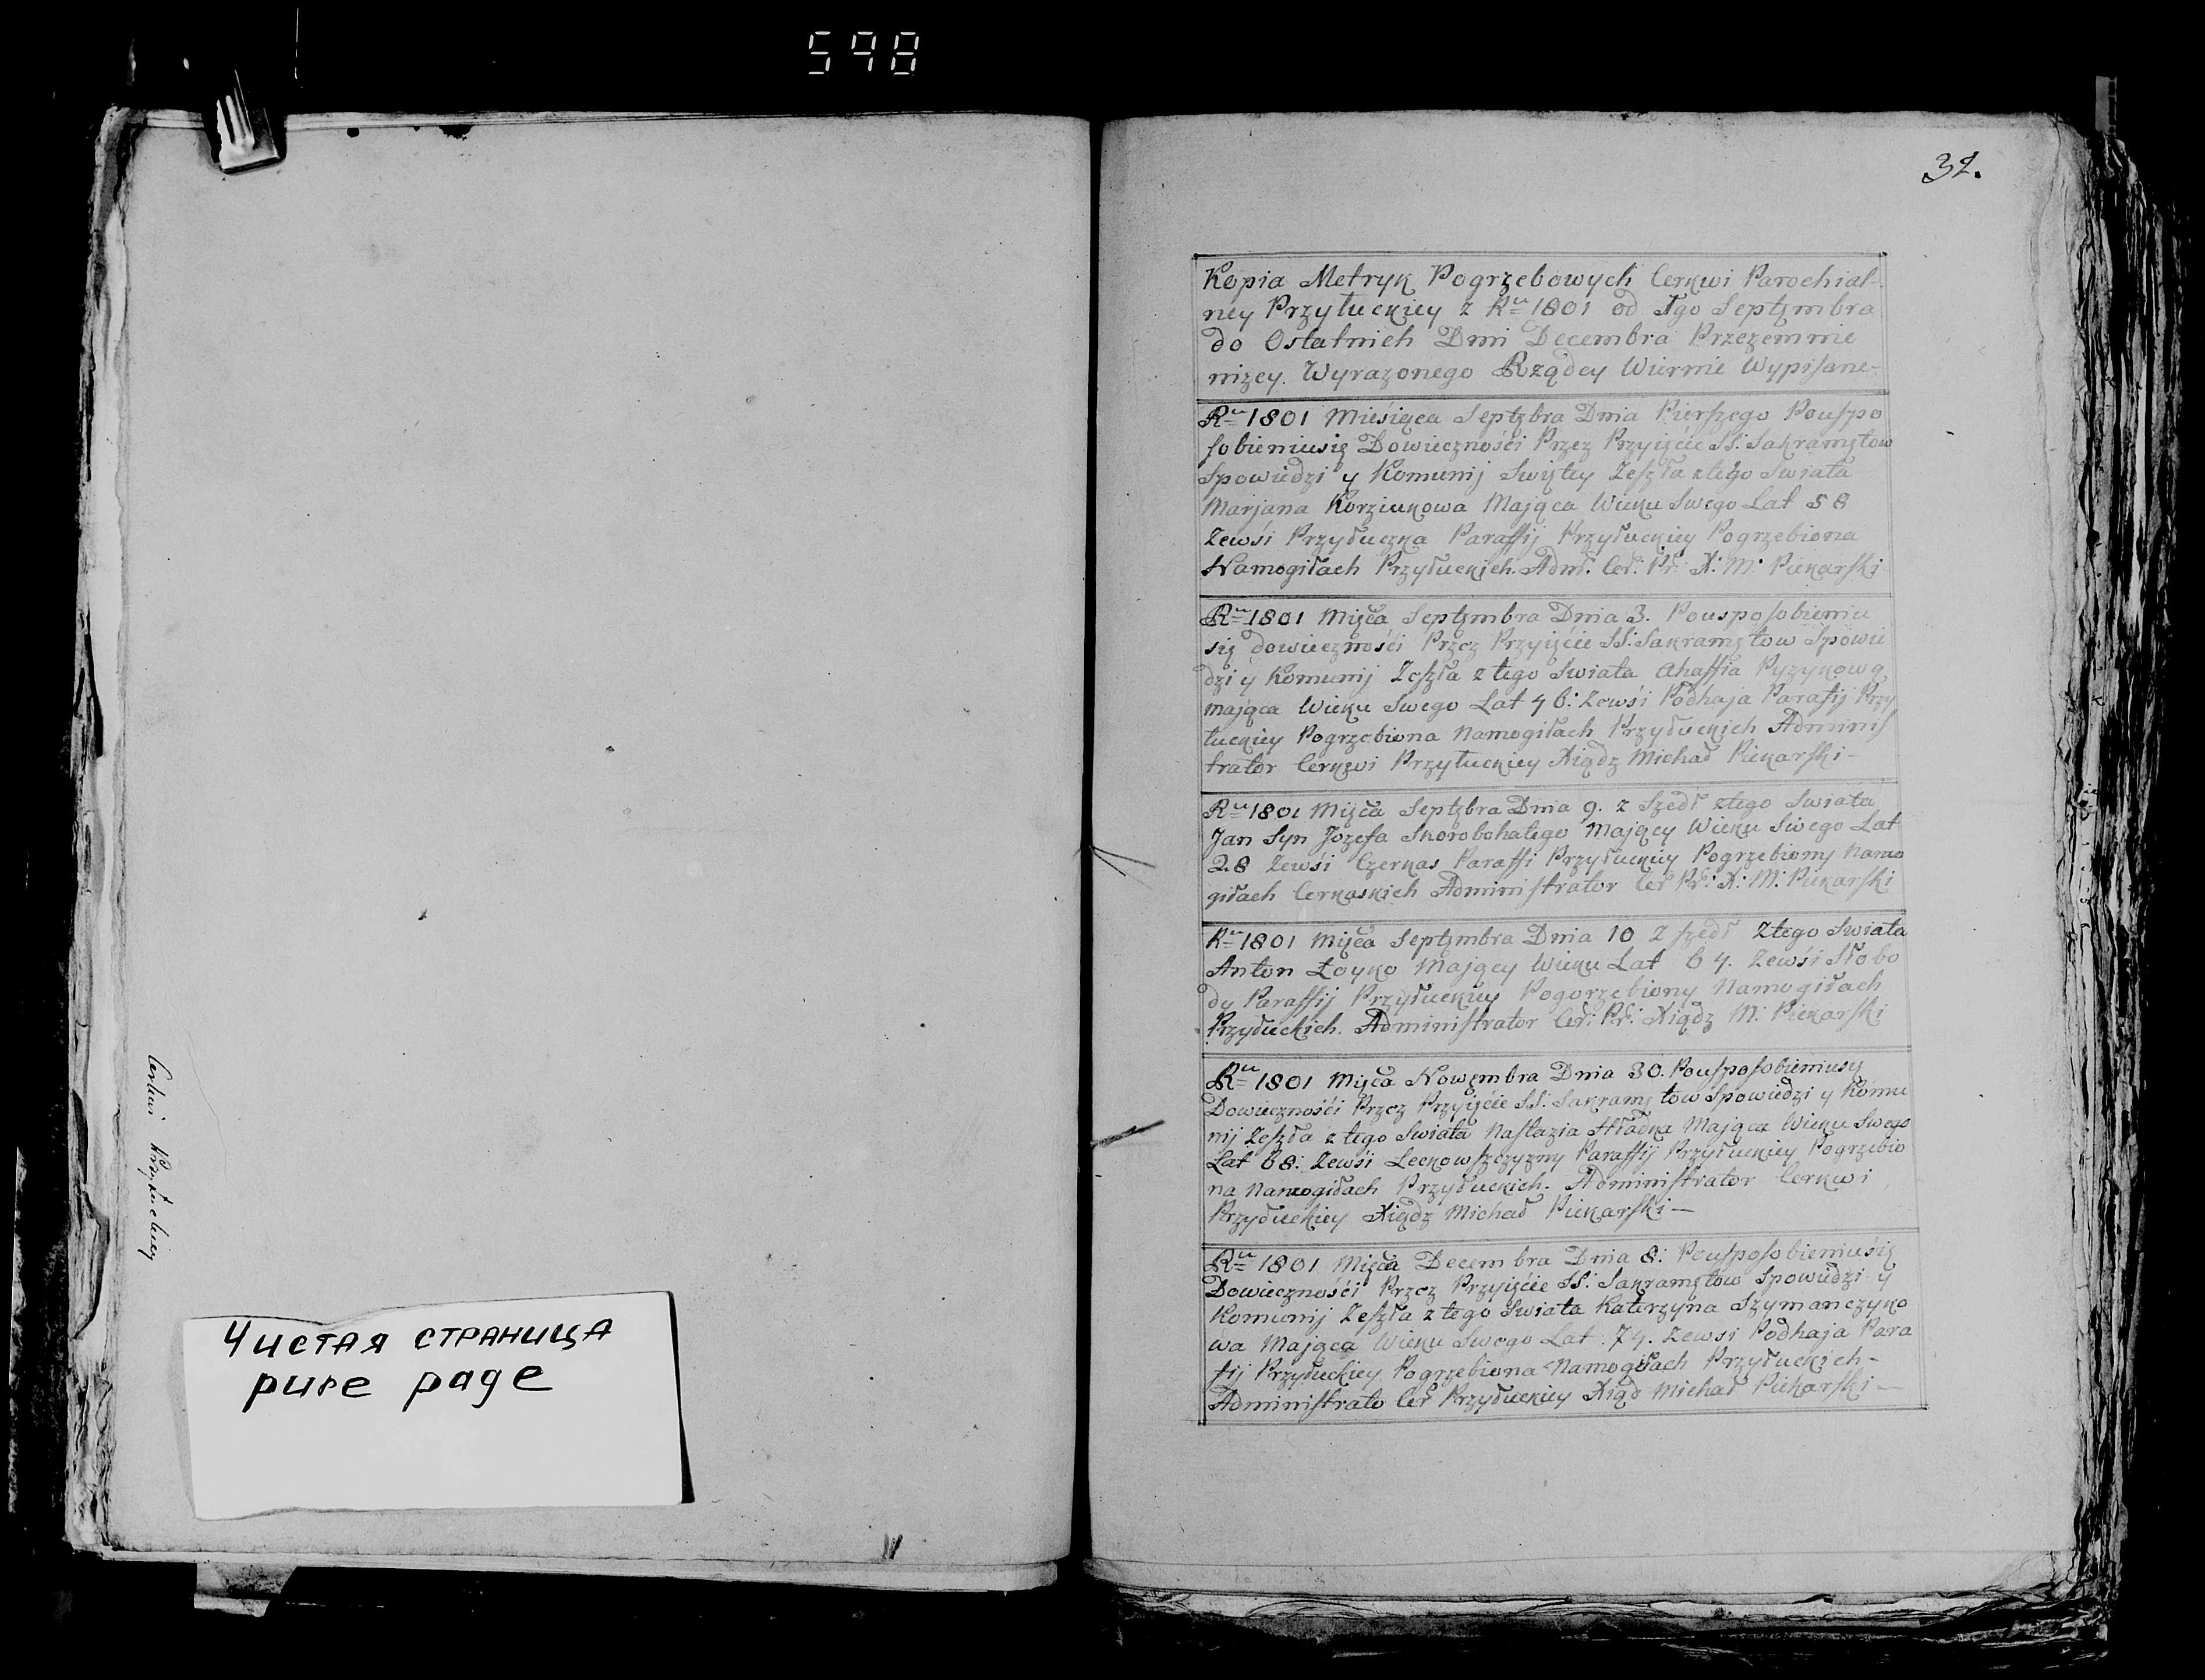 598
Cerkwi Przyłuckiey
Чистая страница
pure page
32.
Kopia Metryk Pogrzebowych Cerkwi Parochial-
ney Przyłuckiey z Rᵘ 1801 od 1go Septęmbra
do Ostatnich Dmi Decembra Przezemnie
niżey Wyrazonego Rządcy Wiernie Wypisane-
Rᵘ 1801 Miesiąca Septębra Dnia Pierszego Pouspo
sobieniusię Dowiecznośći Przez Przyięćie SS: Sakramętow
Spowiedzi y Komunij Swiętey Zeszła ztego Swiata
Marjana Korziukowa Mająca Wieku Swego Lat 58
Zewśi Przyłuczka Paraffij Przyłuckiey Pogrzebiona
Namogiłach Przyłuckich. Admł. Cer: Pr: X: M: Piekarski
Rᵘ 1801 Mięca Septęmbra Dnia 3. Pousposobieniu
się dowiecznośći Przez Przyięćie SS: Sakramętow Spowie
dzi y Komunij Zeszła z tego Swiata Ahaffia Pyzykowa
mająca Wieku Swego Lat 46: Zewśi Podhaja Parafij Przy
łuckiey Pogrzebiona Namogiłach Przyłuckich Adminis
trator Cerkwi Przyłuckiey Xiądz Michał Piekarski-
Rᵘ 1801 Mięca Septębra Dnia 9. z Szedł ztego Swiata
Jan Syn Jozefa Skorobohatego Mający Wieku Swego Lat
28 Zewśi Czerkas Paraffi Przyłuckiey Pogrzebiony Namo
giłach Cerkaskich Administrator Cer Pr: X: M: Piekarski
Rᵘ 1801 Mięca Septęmbra Dnia 10 z szedł ztego Swiata
Anton Łoyko Mający Wieku Lat 64. Zewśi Słobo
dy Paraffij Przyłuckiey Pogorzebiony Namogiłach
Przyłuckich. Administrator Cer: Pr: Xiądz M: Piekarski
Rᵘ 1801 Mięca Nowęmbra Dnia 30. Pousposobieniusę
Dowiecznośći Przez Przyięćie SS: Sakramętow Spowiedzi y Komu
nij Zeszła z tego Swiata Nastazia Hładka Mająca Wieku Swego
Lat 68: Zewśi Leckowszczyzny Paraffij Przyłuckiey Pogrzebio
na Namogiłach Przyłuckich. Administrator Cerkwi
Przyłuckiey Xiądz Michał Piekarski-
Rᵘ 1801 Mięca Decembra Dnia 8: Pousposobieniuśię
Dowiecznośći Przez Przyięćie SS: Sakramętow Spowiedzi y
Komunij Zeszła z tego Swiata Katerzyna Szymanczyko
wa Mająca Wieku Swego Lat 74. Zewsi Podhaja Para
fij Przyłuckiey Pogrzebiona Namogiłach Przyłuckich-
Administrato Cer Przyłuckiey Xiąd Michał Piekarski-